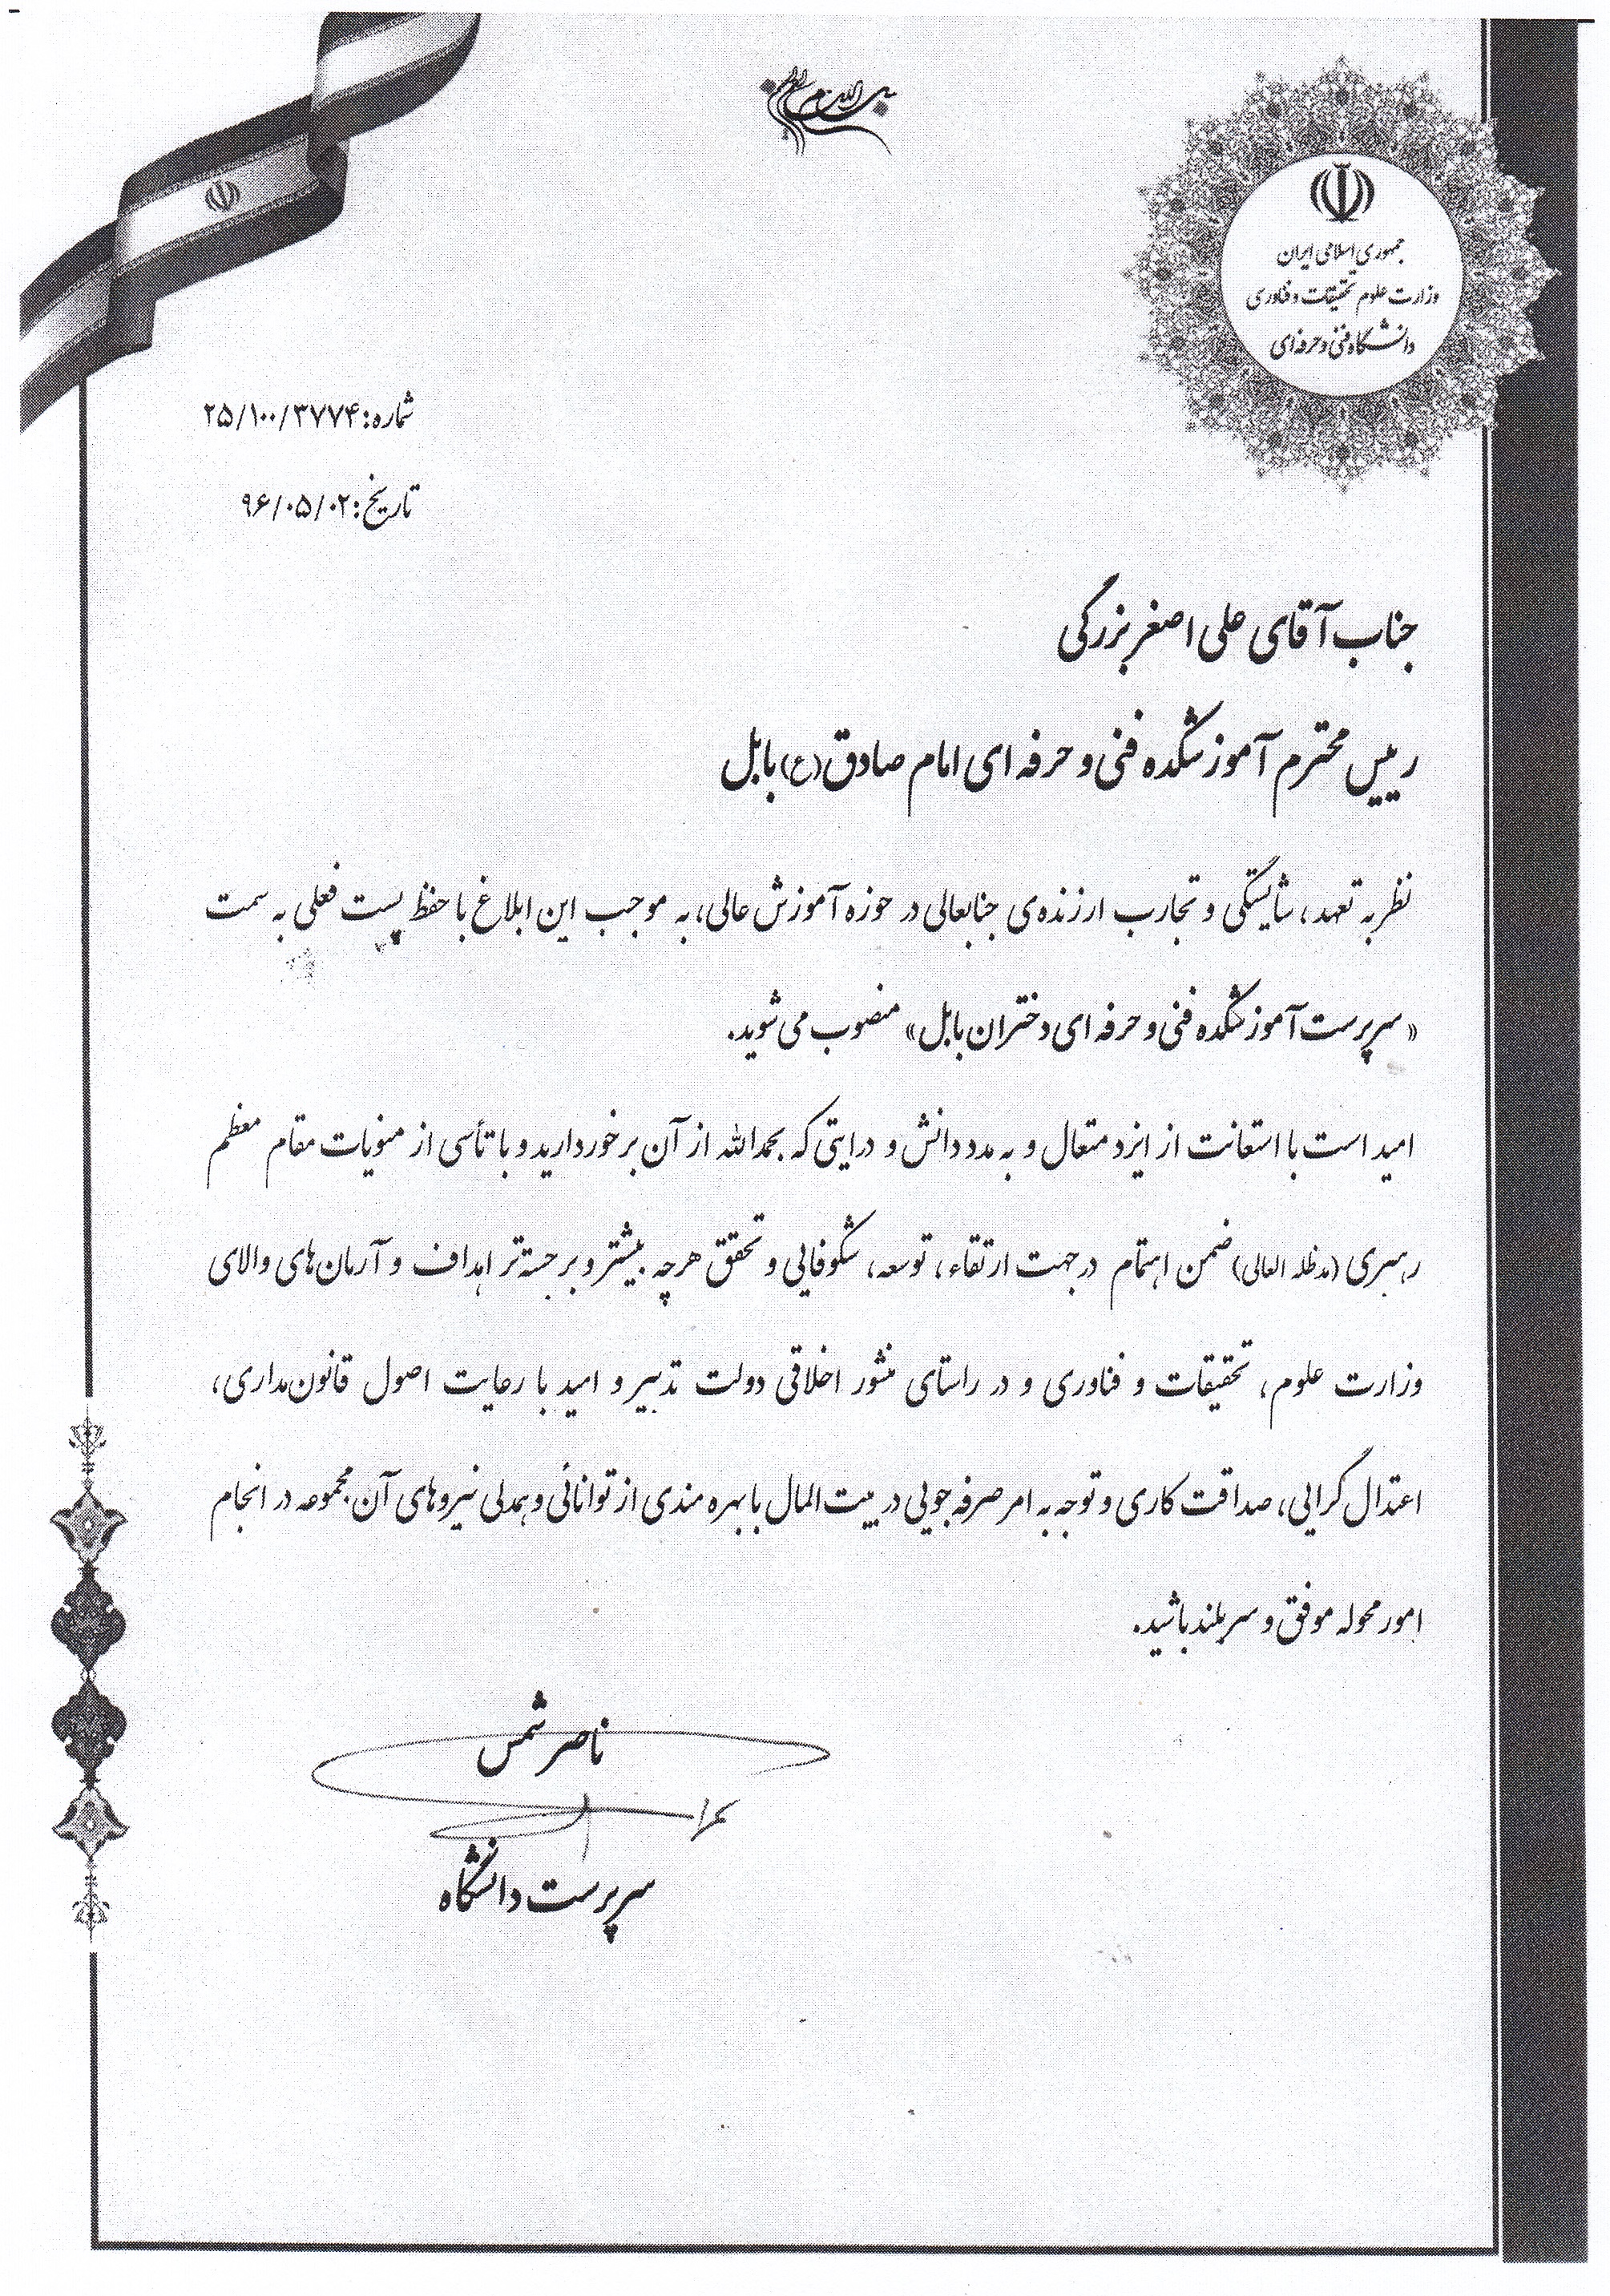 بسم الله الرحمن الرحیم
جمهوری اسلامی ایران
وزارت علوم تحقیقات و فناوری
دانشگاه فنی و حرفه‌ای
شماره: ۲۵/۱۰۰/۳۷۷۴
تاریخ: ۹۶/۰۵/۰۲
جناب آقای علی اصغر بزرگی
رییس محترم آموزشکده فنی و حرفه ای امام صادق (ع) بابل
نظر به تعهد، شایستگی و تجارب ارزنده‌ی جنابعالی در حوزه آموزش عالی، به موجب این ابلاغ با حفظ پست فعلی به سمت
«سرپرست آموزشکده فنی و حرفه ای دختران بابل» منصوب می شوید.
امید است با استعانت از ایزد متعال و به مدد دانش و درایتی که بحمدالله از آن برخوردارید و با تأسی از منویات مقام معظم
رهبری (مدظله العالی) ضمن اهتمام در جهت ارتقاء، توسعه، شکوفایی و تحقق هرچه بیشتر و برجسته‌تر اهداف و آرمان‌های والای
وزارت علوم، تحقیقات و فناوری و در راستای منشور اخلاقی دولت تدبیر و امید با رعایت اصول قانون‌مداری،
اعتدال گرایی، صداقت کاری و توجه به امر صرفه جویی در بیت المال با بهره مندی از توانائی و همدلی نیروهای آن مجموعه در انجام
امور محوله موفق و سربلند باشید.
ناصر شمس
سرپرست دانشگاه